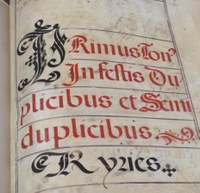 PRimus Ton⁹
In festis Du
plicibus et Semi
duplicibus
Kyries